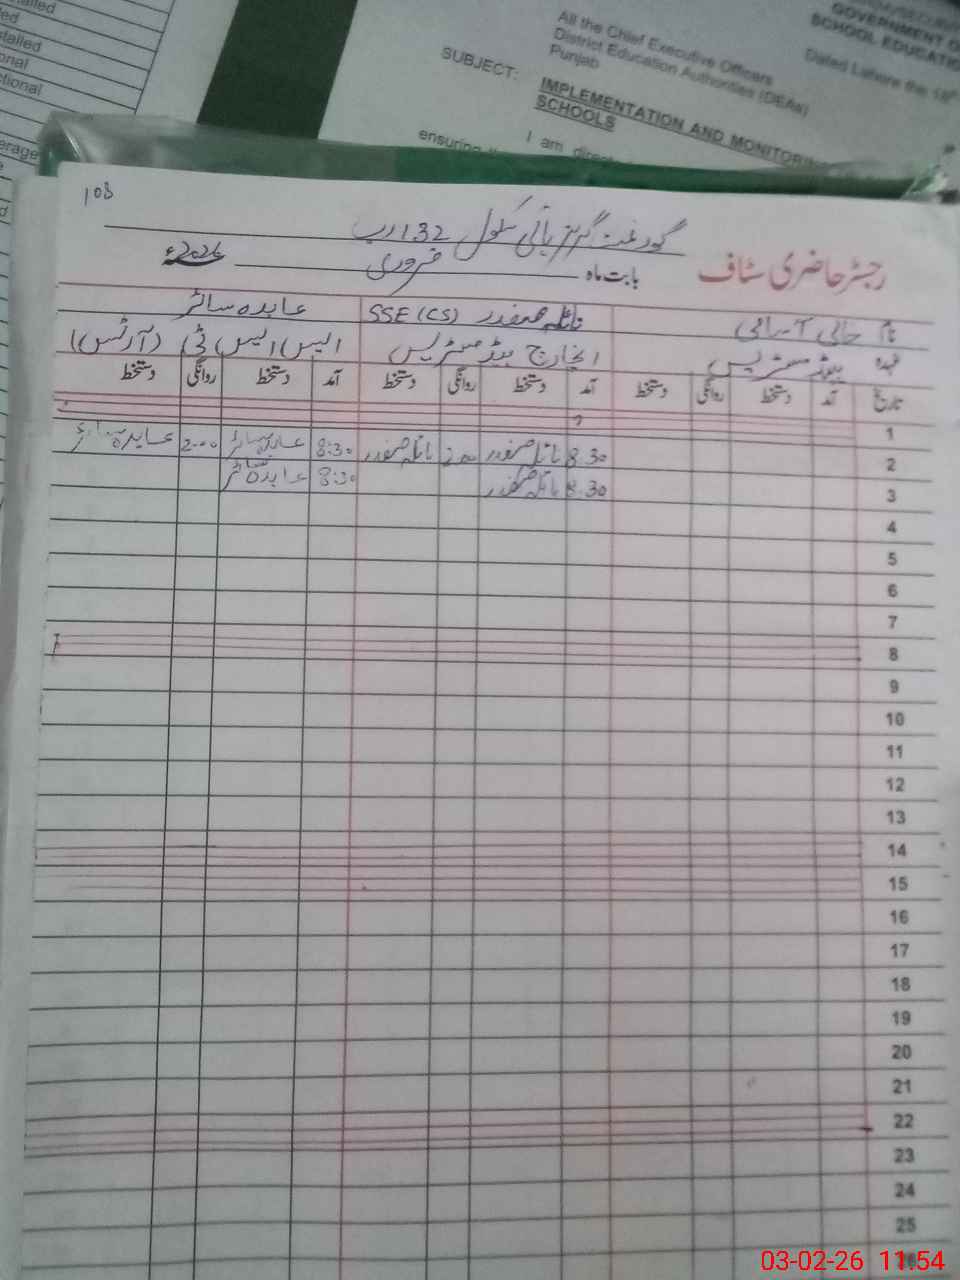 stalled
onal
ctional
erage
GOVERNMENT O
SCHOOL EDUCATIO
Dated Lahore the 18th
All the Chief Executive Officers
District Education Authorities (DEAs)
Punjab
SUBJECT:
IMPLEMENTATION AND MONITORIN
SCHOOLS
I am direct
ensuring
108
گورنمنٹ گرلز ہائی سکول 132 رب
رجسٹر حاضری سٹاف
بابت ماہ فروری 2026ء
نام خالی آسامی نائلہ صفدر SSE (CS) عابدہ ستار
عہدہ ہیڈ مسٹریس انچارج ہیڈ مسٹریس ایس ایس ٹی (آرٹس)
تاریخ آمد دستخط روانگی دستخط آمد دستخط روانگی دستخط آمد دستخط روانگی دستخط
1
2 8:30 نائلہ صفدر 2:00 نائلہ صفدر 8:30 عابدہ ستار 2:00 عابدہ ستار
3 8:30 نائلہ صفدر 8:30 عابدہ ستار
4
5
6
7
8
9
10
11
12
13
14
15
16
17
18
19
20
21
22
23
24
25
03-02-26 11:54